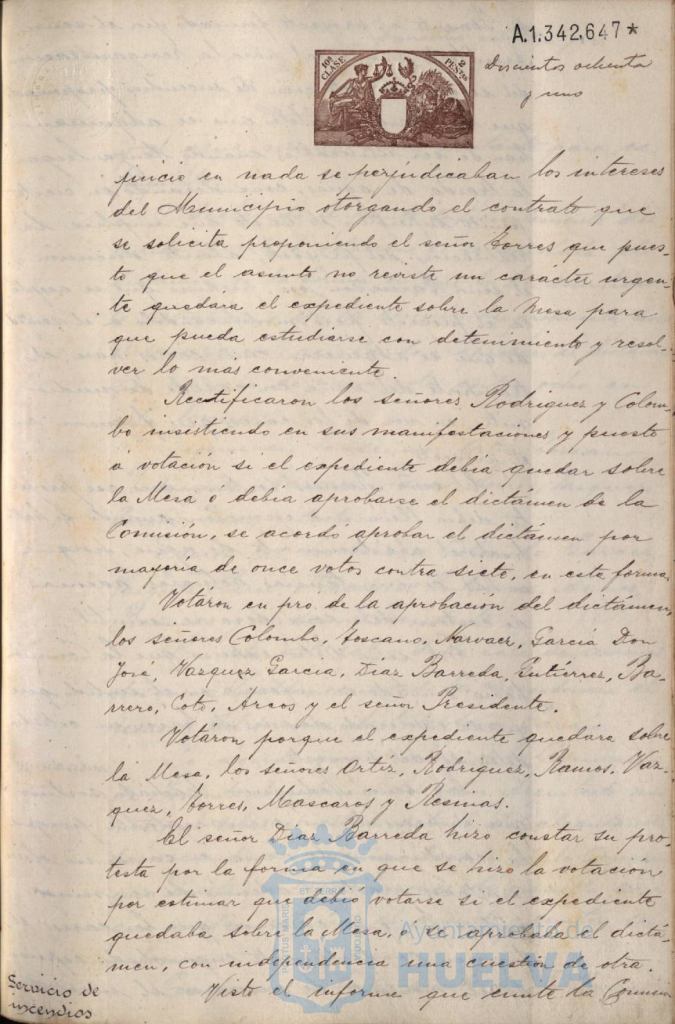 A.1.342.647*
10ª CLASE
2 PESETAS
Doscientos ochenta
y uno
juicio en nada se perjudicaban los intereses
del Municipio otorgando el contrato que
se solicita proponiendo el señor Torres que pues-
to que el asunto no reviste un carácter urgen-
te quedára el expediente sobre la Mesa para
que pueda estudiarse con detenimiento y resol-
ver lo mas conveniente.
Rectificaron los señores Rodriguez y Colom-
bo insistiendo en sus manifestaciones y puesto
á votación si el expediente debia quedar sobre
la Mesa ó debia aprobarse el dictámen de la
Comisión, se acordó aprobar el dictámen por
mayoría de once votos contra siete, en esta forma.
Votáron en pró de la aprobación del dictámen,
los señores Colombo, Toscano, Narvaez, García Don
José, Vazquez Garcia, Diaz Barreda, Gutiérrez, Ba-
rrero, Coto, Arcos y el señor Presidente.
Votáron porque el expediente quedára sobre
la Mesa, los señores Ortíz, Rodriguez, Ramos, Vaz-
quez, Torres, Mascarós y Resinas.
El señor Diaz Barreda hizo constar su pro-
testa por la forma en que se hizo la votación
por estimar que debió votarse si el expediente
quedaba sobre la Mesa, ó se aprobaba el dictá-
men, con independencia una cuestión de otra.
Servicio de
incendios
Visto el informe que emite la Comisión
Ayuntamiento de
HUELVA